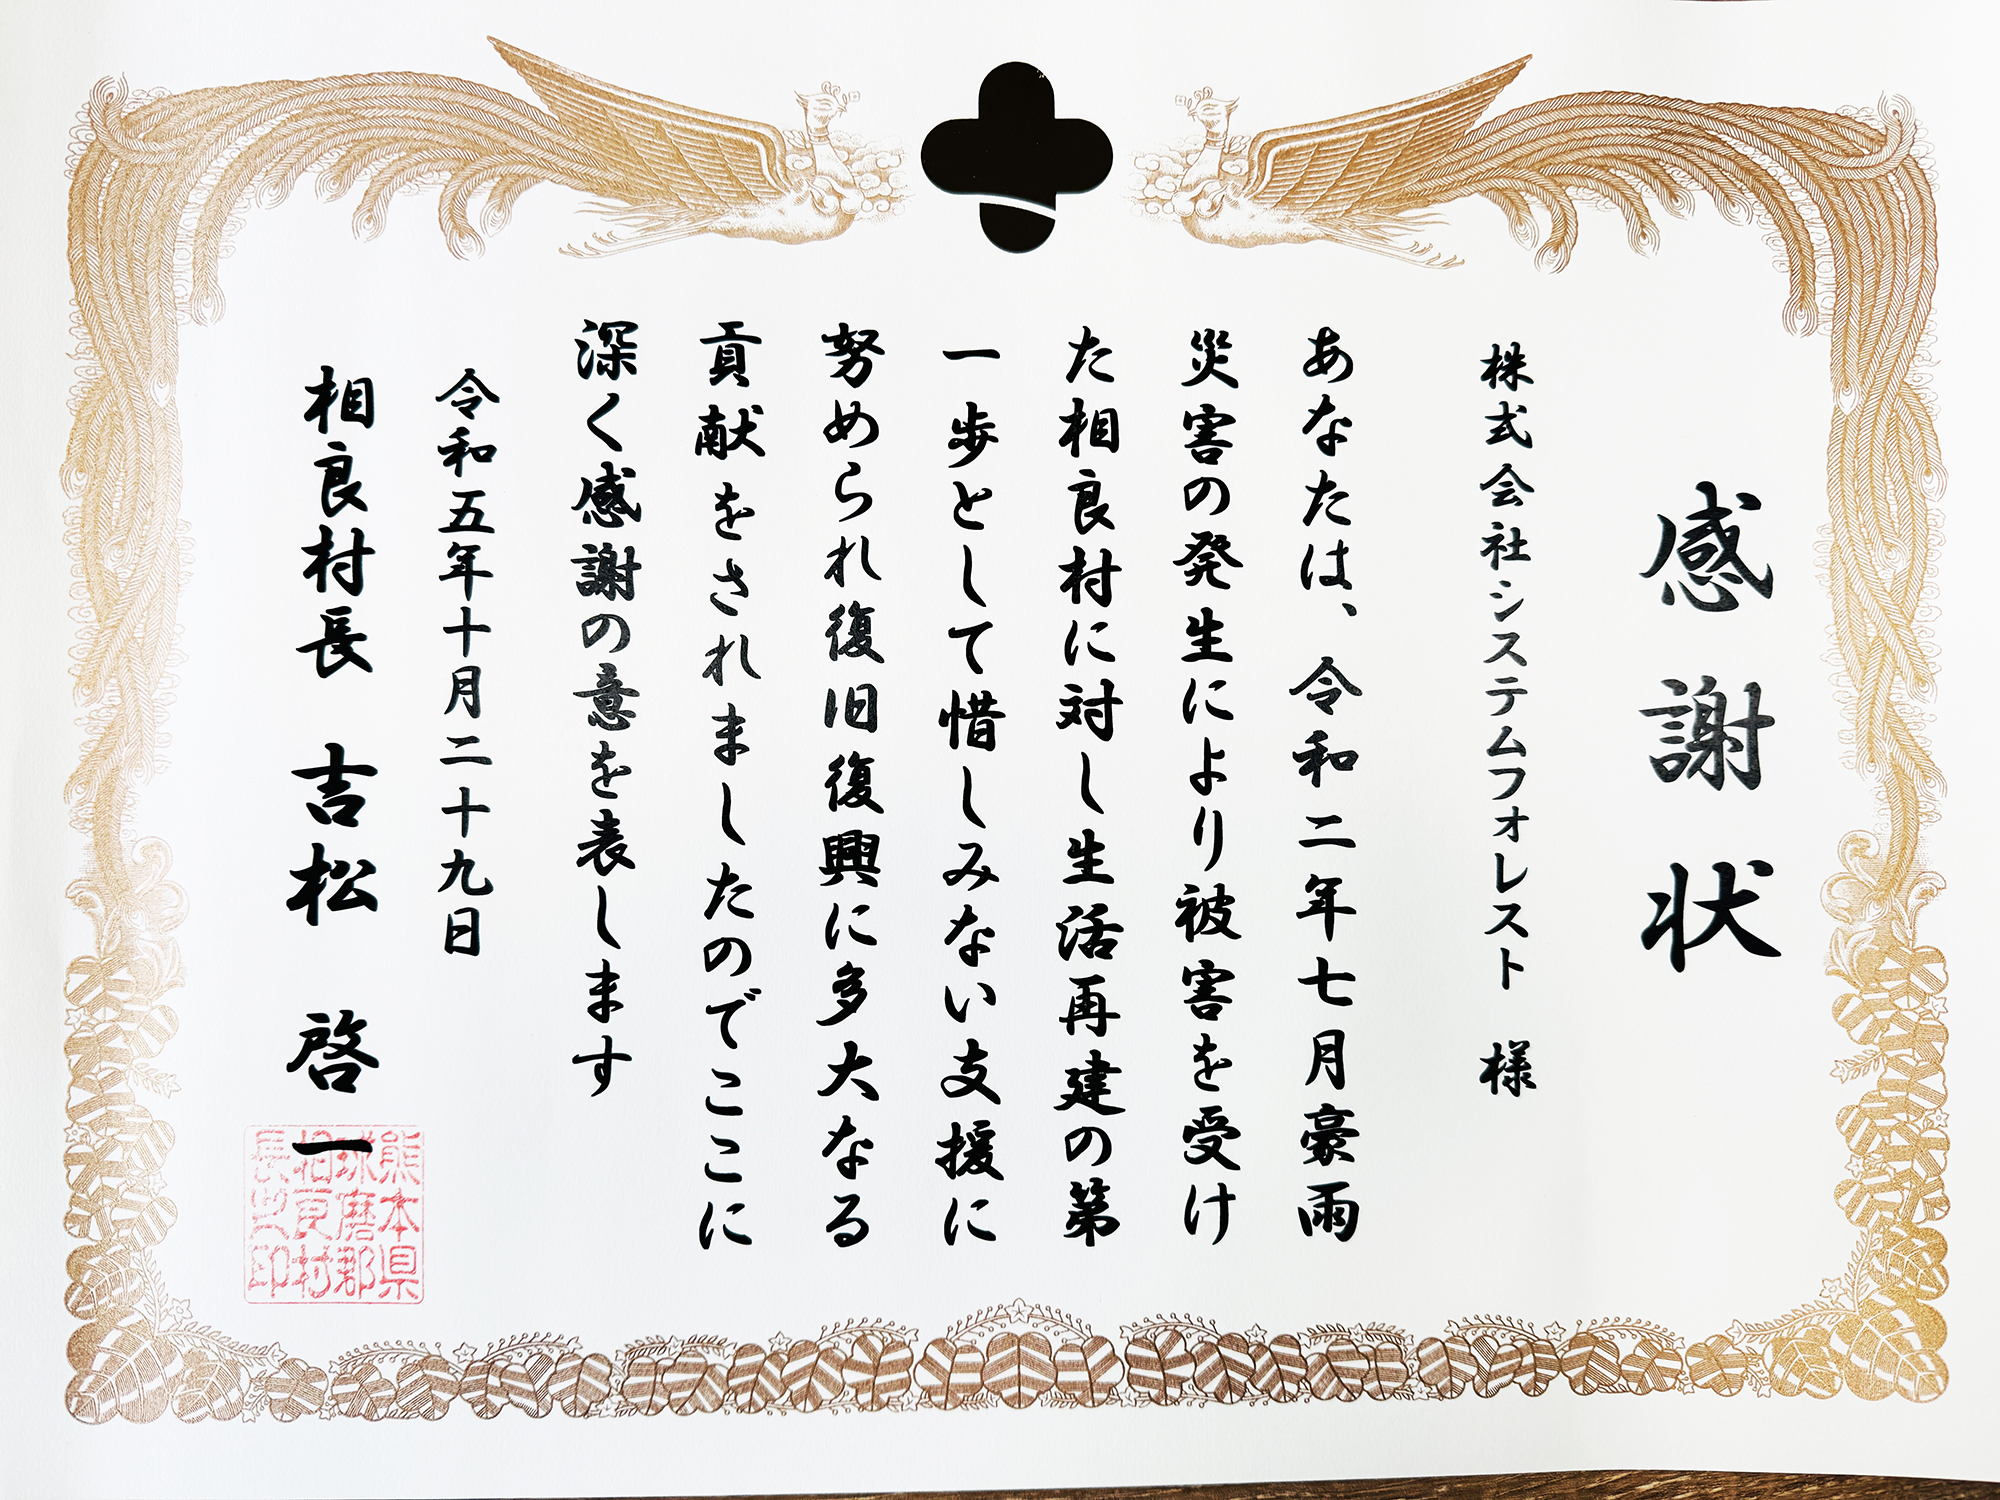 感謝状
株式会社システムフォレスト 様
あなたは、令和二年七月豪雨
災害の発生により被害を受け
た相良村に対し生活再建の第
一歩として惜しみない支援に
努められ復旧復興に多大なる
貢献をされましたのでここに
深く感謝の意を表します
令和五年十月二十九日
相良村長 吉松 啓一
熊本県
球磨郡
相良村
長之印